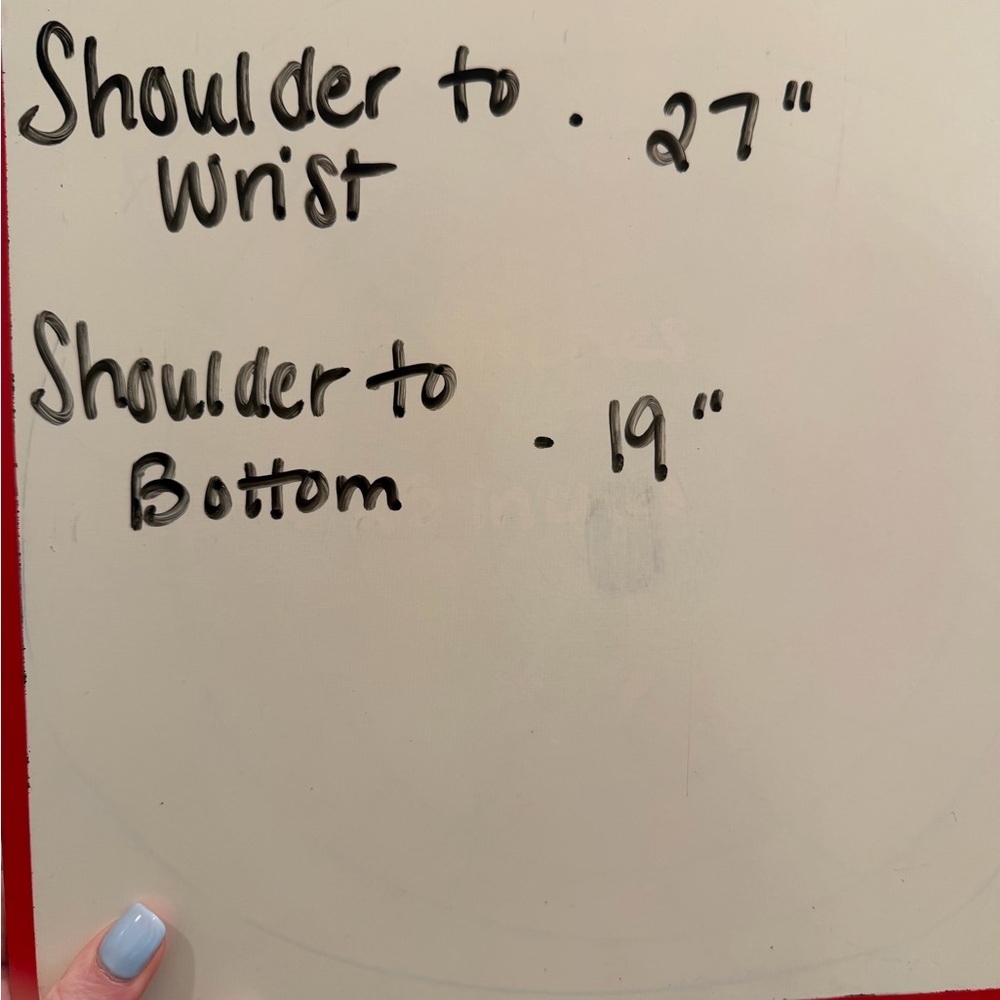 Shoulder to . 27"
Wrist
Shoulder to
Bottom - 19"